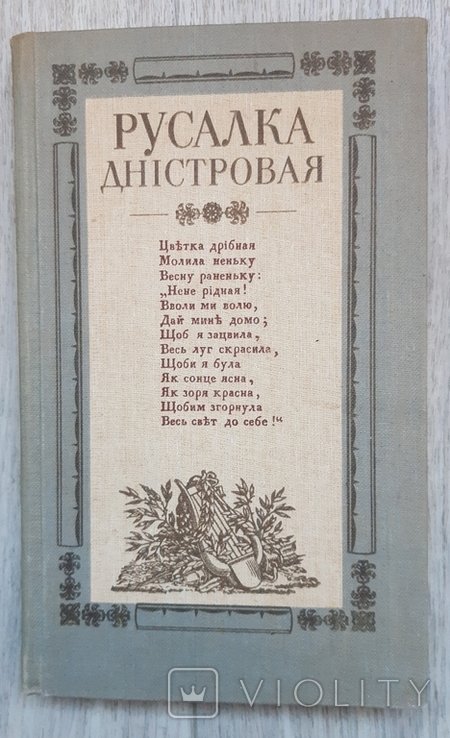 РУСАЛКА
ДНІСТРОВАЯ
Цвѣтка дрібная
Молила неньку
Весну раненьку:
„Нене рідная!
Вволи ми волю,
Дай минѣ домо;
Щоб я зацвила,
Весь луг скрасила,
Щоби я була
Як сонце ясна,
Як зоря красна,
Щобим згорнула
Весь свѣт до себе!“
VIOLITY